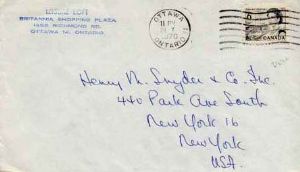 LEISURE LOFT
BRITANNIA SHOPPING PLAZA
1495 RICHMOND RD.
OTTAWA 14, ONTARIO
OTTAWA
11 PM
1970
ONTARIO
CANADA
Henry M. Snyder & Co. Inc.
440 Park Ave South
New York 16
New York
USA.